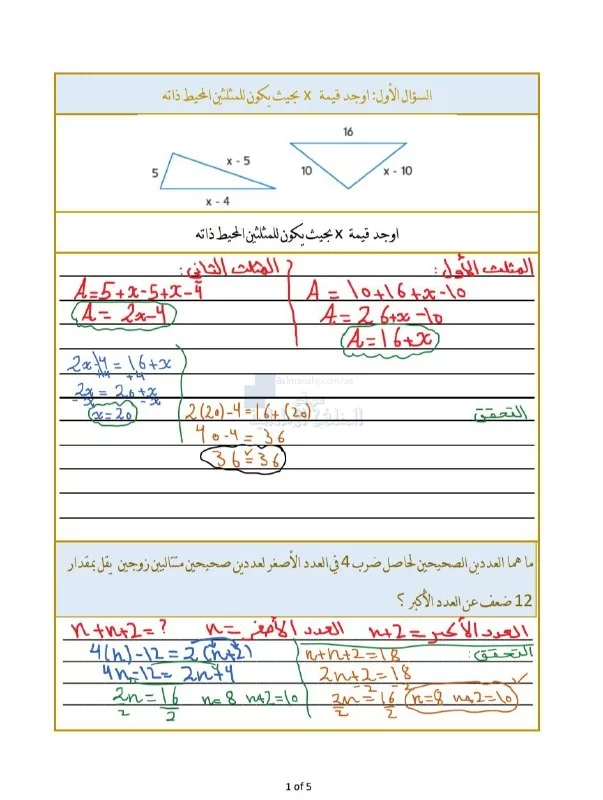 السؤال الأول: اوجد قيمة x بحيث يكون للمثلثين المحيط ذاته
16
5
x - 5
10
x - 10
x - 4
اوجد قيمة x بحيث يكون للمثلثين المحيط ذاته
المثلث الأول:
A = 10+16+x-10
A = 26+x-10
A=16+x
المثلث الثاني:
A=5+x-5+x-4
A= 2x-4
2x-4 = 16+x
+4 +4
2x = 20+x
-x -x
x=20
almanahj.com/ae
التحقق
2(20)-4=16+(20)
40-4= 36
36=36
ما هما العددين الصحيحين لحاصل ضرب 4 في العدد الأصغر لعددين صحيحين متتاليين زوجين يقل بمقدار
12 ضعف عن العدد الأكبر ؟
العدد الأكبر=n+2 العدد الأصغر=n n+n+2=?
4(n)-12=2(n+2)
4n-12= 2n+4
2n=16 n=8 n+2=10
2 2
التحقق:
n+n+2=18
2n+2=18
-2 -2
2n=16 n=8 n+2=10
2 2
1 of 5